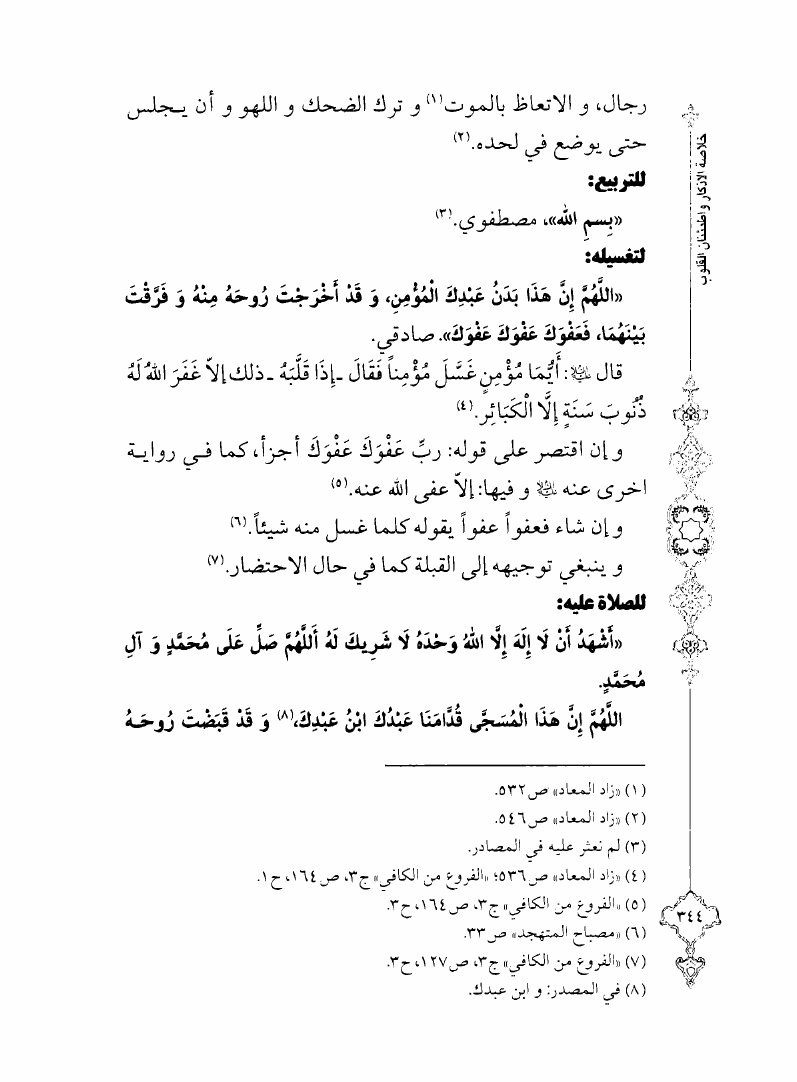 رجال، و الاتعاظ بالموت(١) و ترك الضحك و اللهو و أن يـجلس
حتى يوضع في لحده.(٢)
للتربيع:
«بِسمِ الله»، مصطفوي.(٣)
لتغسيله:
«اللَّهُمَّ إِنَّ هَذَا بَدَنُ عَبْدِكَ الْمُؤْمِنِ، وَ قَدْ أَخْرَجْتَ رُوحَهُ مِنْهُ وَ فَرَّقْتَ
بَيْنَهُمَا، فَعَفْوَكَ عَفْوَكَ عَفْوَكَ». صادقي.
قال ﷺ: أَيُّمَا مُؤْمِنٍ غَسَّلَ مُؤْمِناً فَقَالَ ـ إِذَا قَلَّبَهُ ـ ذلك إلاّ غَفَرَ اللهُ لَهُ
ذُنُوبَ سَنَةٍ إِلَّا الْكَبَائِر.(٤)
و إن اقتصر على قوله: ربِّ عَفْوَكَ عَفْوَكَ أجزأ، كما فـي روايـة
اخرى عنه و فيها: إلاّ عفى الله عنه.(٥)
و إن شاء فعفواً عفواً يقوله كلما غسل منه شيئاً.(٦)
و ينبغي توجيهه إلى القبلة كما في حال الاحتضار.(٧)
للصلاة عليه:
«أَشْهَدُ أَنْ لَا إِلَهَ إِلَّا اللهُ وَحْدَهُ لَا شَرِيكَ لَهُ أَللَّهُمَّ صَلِّ عَلَى مُحَمَّدٍ وَ آلِ
مُحَمَّدٍ.
اللَّهُمَّ إِنَّ هَذَا الْمُسَجَّى قُدَّامَنَا عَبْدُكَ ابْنُ عَبْدِكَ،(٨) وَ قَدْ قَبَضْتَ رُوحَـهُ
(١) «زاد المعاد» ص٥٣٢.
(٢) «زاد المعاد» ص٥٤٦.
(٣) لم نعثر عليه في المصادر.
(٤) «زاد المعاد» ص٥٣٦؛ «الفروع من الكافي» ج٣، ص١٦٤، ح١.
(٥) «الفروع من الكافي» ج٣، ص١٦٤، ح٣.
(٦) «مصباح المتهجد» ص٣٣.
(٧) «الفروع من الكافي» ج٣، ص١٢٧، ح٣.
(٨) في المصدر: و ابن عبدك.
خلاصة الاذكار واطمئنان القلوب
٣٤٤